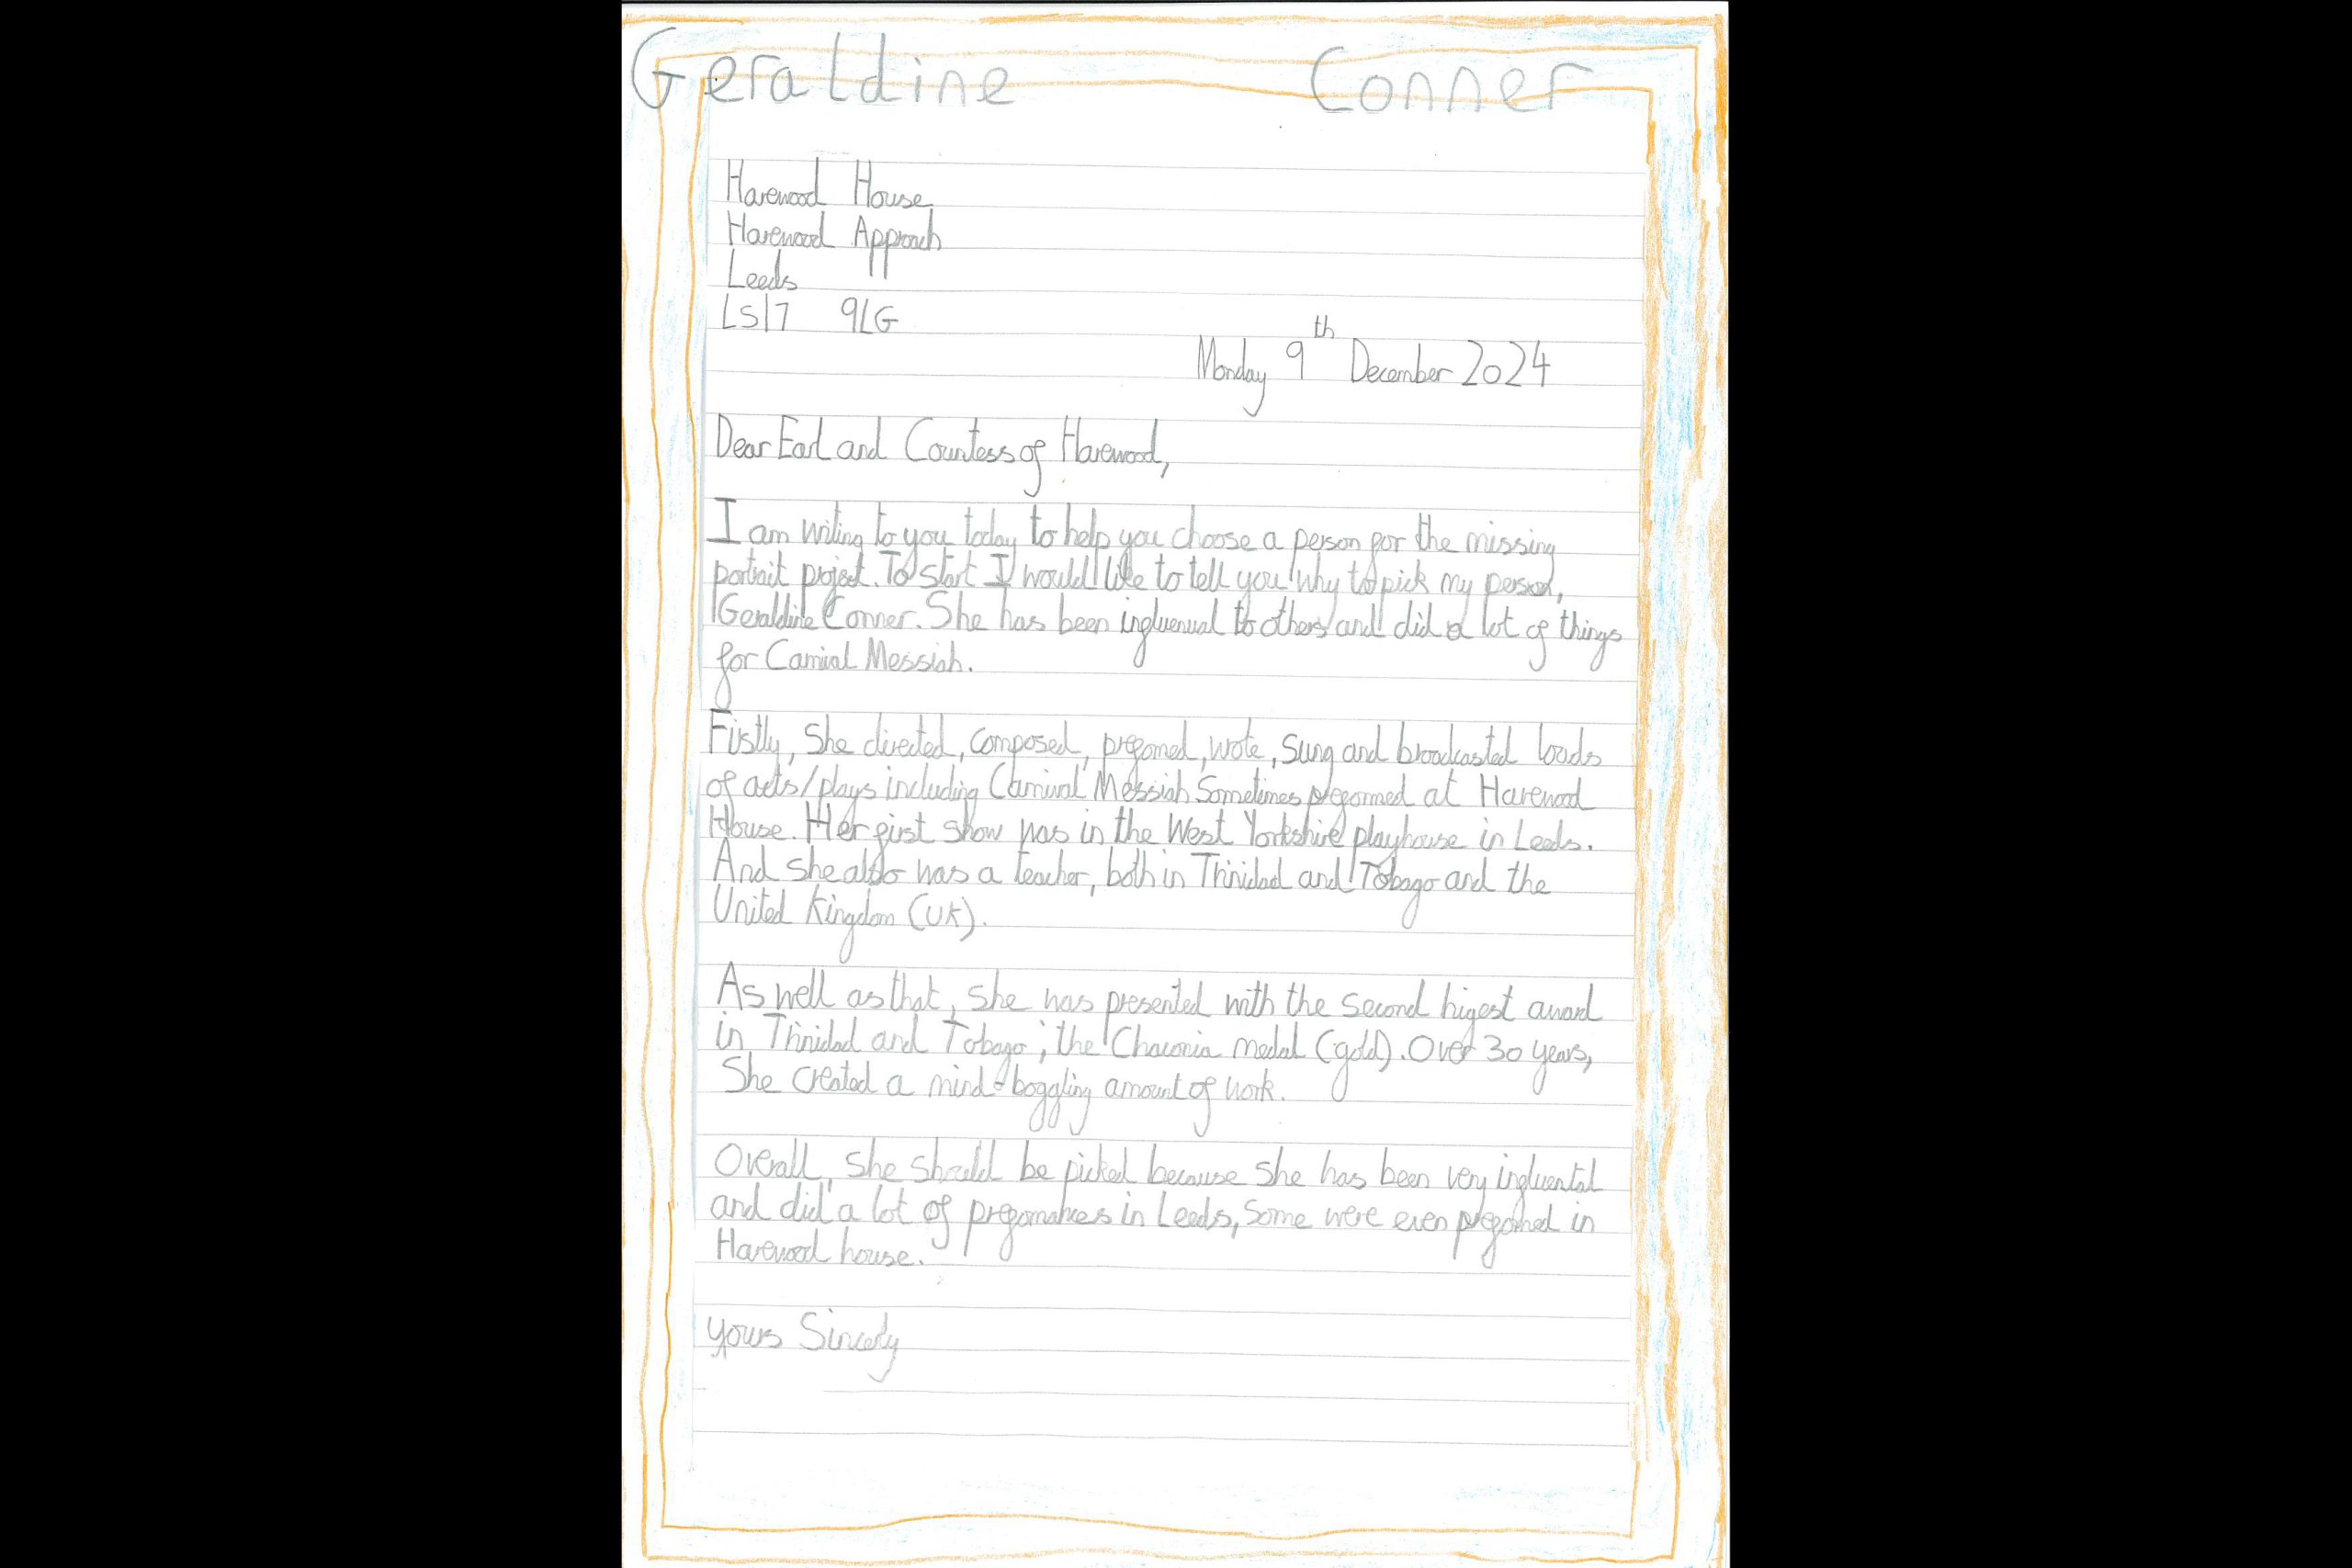 Geraldine Conner
Harewood House
Harewood Approach
Leeds
LS17 9LG
Monday 9th December 2024
Dear Earl and Countess of Harewood,
I am writing to you today to help you choose a person for the missing
portrait project. To start I would like to tell you why to pick my person,
Geraldine Conner. She has been to others and did a lot of things
for Carnival Messiah.
Firstly, She directed, composed, wrote, Sung and broadcasted loads
of acts/plays including Carnival Messiah Sometimes at Harewood
House. Her first show was in the West Yorkshire playhouse in Leeds.
And she also was a teacher, both in Trinidad and Tobago and the
United Kingdom (UK).
As well as that, she was presented with the second higest award
in Trinidad and Tobago; the Chaconia medal (gold). Over 30 years,
She created a mind-boggling amount of work.
Overall, she should be picked because she has been very
and did a lot of in Leeds, Some were even in
Harewood house.
yours Sincerly